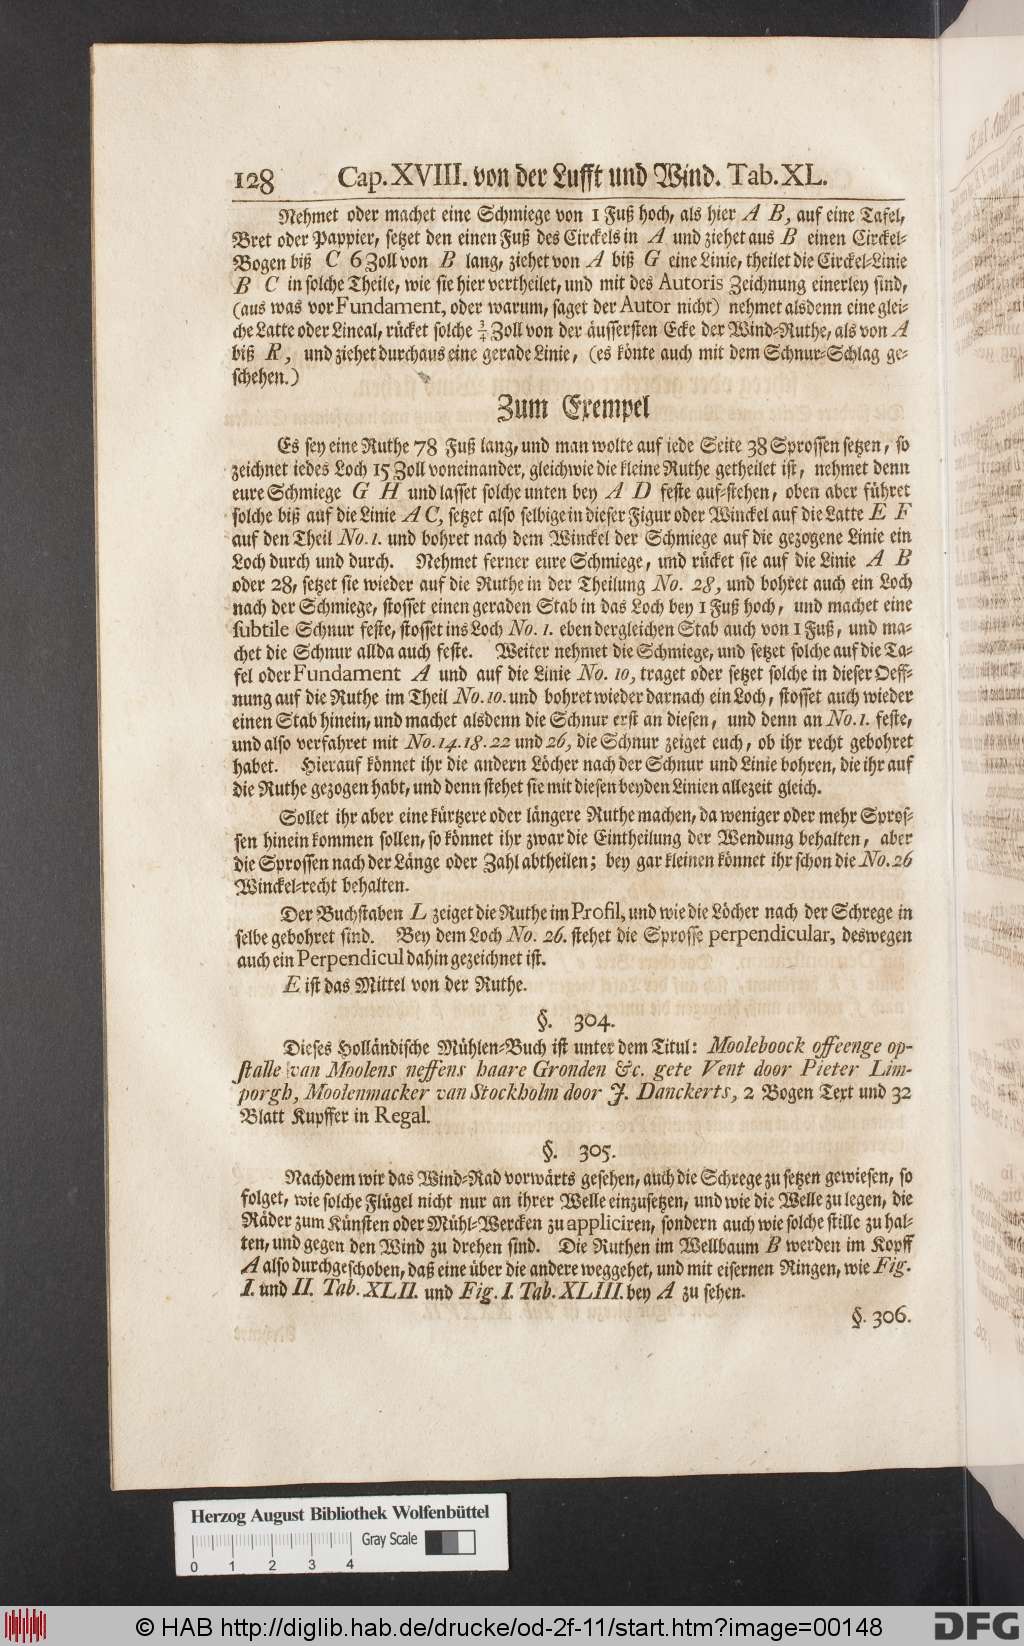 128 Cap. XVIII. von der Lufft und Wind. Tab. XL.
Nehmet oder machet eine Schmiege von 1 Fuß hoch, als hier A B, auf eine Tafel,
Bret oder Pappier, setzet den einen Fuß des Circkels in A und ziehet aus B einen Circkel-
Bogen biß C 6 Zoll von B lang, ziehet von A biß G eine Linie, theilet die Circkel-Linie
B C in solche Theile, wie sie hier vertheilet, und mit des Autoris Zeichnung einerley sind,
(aus was vor Fundament, oder warum, saget der Autor nicht) nehmet alsdenn eine glei-
che Latte oder Lineal, rücket solche ¾ Zoll von der äussersten Ecke der Wind-Ruthe, als von A
biß R, und ziehet durchaus eine gerade Linie, (es könte auch mit dem Schnur-Schlag ge-
schehen.)
Zum Exempel
Es sey eine Ruthe 78 Fuß lang, und man wolte auf iede Seite 38 Sprossen setzen, so
zeichnet iedes Loch 15 Zoll voneinander, gleichwie die kleine Ruthe getheilet ist, nehmet denn
eure Schmiege G H und lasset solche unten bey A D feste auf-stehen, oben aber führet
solche biß auf die Linie A C, setzet also selbige in dieser Figur oder Winckel auf die Latte E F
auf den Theil No. 1. und bohret nach dem Winckel der Schmiege auf die gezogene Linie ein
Loch durch und durch. Nehmet ferner eure Schmiege, und rücket sie auf die Linie A B
oder 28, setzet sie wieder auf die Ruthe in der Theilung No. 28, und bohret auch ein Loch
nach der Schmiege, stosset einen geraden Stab in das Loch bey 1 Fuß hoch, und machet eine
subtile Schnur feste, stosset ins Loch No. 1. eben dergleichen Stab auch von 1 Fuß, und ma-
chet die Schnur allda auch feste. Weiter nehmet die Schmiege, und setzet solche auf die Ta-
fel oder Fundament A und auf die Linie No. 10, traget oder setzet solche in dieser Oeff-
nung auf die Ruthe im Theil No. 10. und bohret wieder darnach ein Loch, stosset auch wieder
einen Stab hinein, und machet alsdenn die Schnur erst an diesen, und denn an No. 1. feste,
und also verfahret mit No. 14. 18. 22 und 26, die Schnur zeiget euch, ob ihr recht gebohret
habet. Hierauf könnet ihr die andern Löcher nach der Schnur und Linie bohren, die ihr auf
die Ruthe gezogen habt, und denn stehet sie mit diesen beyden Linien allezeit gleich.
Sollet ihr aber eine kürtzere oder längere Ruthe machen, da weniger oder mehr Spros-
sen hinein kommen sollen, so könnet ihr zwar die Eintheilung der Wendung behalten, aber
die Sprossen nach der Länge oder Zahl abtheilen; bey gar kleinen könnet ihr schon die No. 26
Winckel-recht behalten.
Der Buchstaben L zeiget die Ruthe im Profil, und wie die Löcher nach der Schrege in
selbe gebohret sind. Bey dem Loch No. 26. stehet die Sprosse perpendicular, deswegen
auch ein Perpendicul dahin gezeichnet ist.
E ist das Mittel von der Ruthe.
§. 304.
Dieses Holländische Mühlen-Buch ist unter dem Titul: Mooleboock offeenge op-
stalle van Moolens neffens haare Gronden &c. gete Vent door Pieter Lim-
porgh, Moolenmacker van Stockholm door J. Danckerts, 2 Bogen Text und 32
Blatt Kupffer in Regal.
§. 305.
Nachdem wir das Wind-Rad vorwärts gesehen, auch die Schrege zu setzen gewiesen, so
folget, wie solche Flügel nicht nur an ihrer Welle einzusetzen, und wie die Welle zu legen, die
Räder zum Künsten oder Mühl-Wercken zu appliciren, sondern auch wie solche stille zu hal-
ten, und gegen den Wind zu drehen sind. Die Ruthen im Wellbaum B werden im Kopff
A also durchgeschoben, daß eine über die andere weggehet, und mit eisernen Ringen, wie Fig.
I. und II. Tab. XLII. und Fig. I. Tab. XLIII. bey A zu sehen.
§. 306.
Herzog August Bibliothek Wolfenbüttel
Gray Scale
0 1 2 3 4
© HAB http://diglib.hab.de/drucke/od-2f-11/start.htm?image=00148
DFG